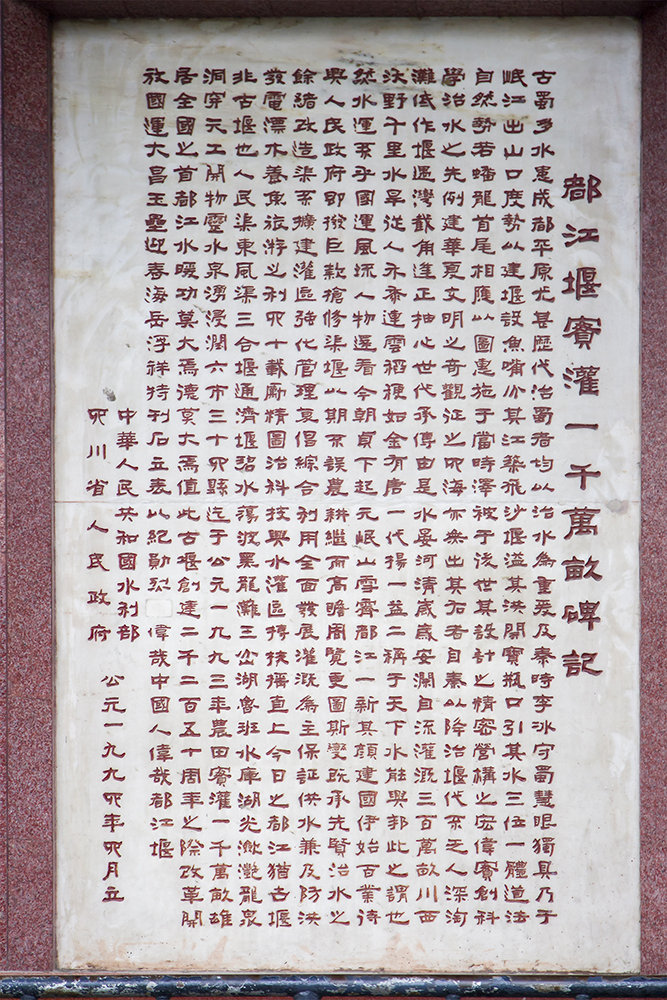 都江堰實灌一千萬畝碑記
古蜀多水患成都平原尤甚歷代治蜀者均以治水為重爰及秦時李冰守蜀慧眼獨具乃于
岷江出山口度勢以建堰設魚嘴分其江築飛沙堰溢其洪開寶瓶口引其水三位一體道法
自然勢若蟠龍首尾相應以圖惠施于當時澤被于後世其設計之精密營構之宏偉實創科
學治水之先例建華夏文明之奇觀征之四海亦無出其右者自秦以降治堰代不乏人深淘
灘低作堰遇灣截角逢正抽心世代承傳由是水晏河清歲歲安瀾自流灌溉三百萬畝川西
沃野千里水旱從人禾黍連雲稻粳如金有唐一代揚一益二稱于天下水能興邦此之謂也
然水運系乎國運風流人物還看今朝貞下起元岷山雪霽都江一新其顏建國伊始百業待
興人民政府即撥巨款搶修渠堰以期不誤農耕繼而高瞻周覽更圖斯變既承先賢治水之
餘緒改造渠系擴建灌區強化管理复倡綜合利用全面發展灌溉為主保証供水兼及防洪
發電漂木養魚旅游之利四十載勵精圖治科技興水灌區摶扶搖直上今日之都江猶古堰
非古堰也人民渠東風渠三合堰通濟堰碧水蕩波黑龍灘三岔湖魯班水庫湖光瀲灧龍泉
洞穿天工開物靈水泉湧浸潤六市三十四縣迄于公元一九九三年農田實灌一千萬畝雄
居全國之首都江水暖功莫大焉德莫大焉值此古堰創建二千二百五十周年之際改革開
放國運大昌玉壘迎春海岳浮祥特刊石立表以紀勛烈 偉哉中國人偉哉都江堰
中華人民共和國水利部
四川省人民政府 公元一九九四年四月立